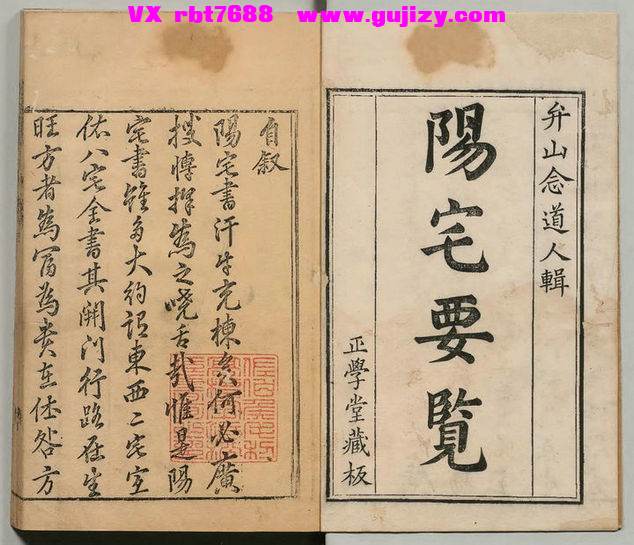 VX rbt7688 www.gujizy.com
弁山念道人輯
陽宅要覽
正學堂藏板
自叙
陽宅書汗牛充棟矣何必廣
搜博擇爲之嘵舌哉惟是陽
宅書雖多大約東西二宅
八宅全書其開門行路在生
旺方者爲富為貴在休咎方